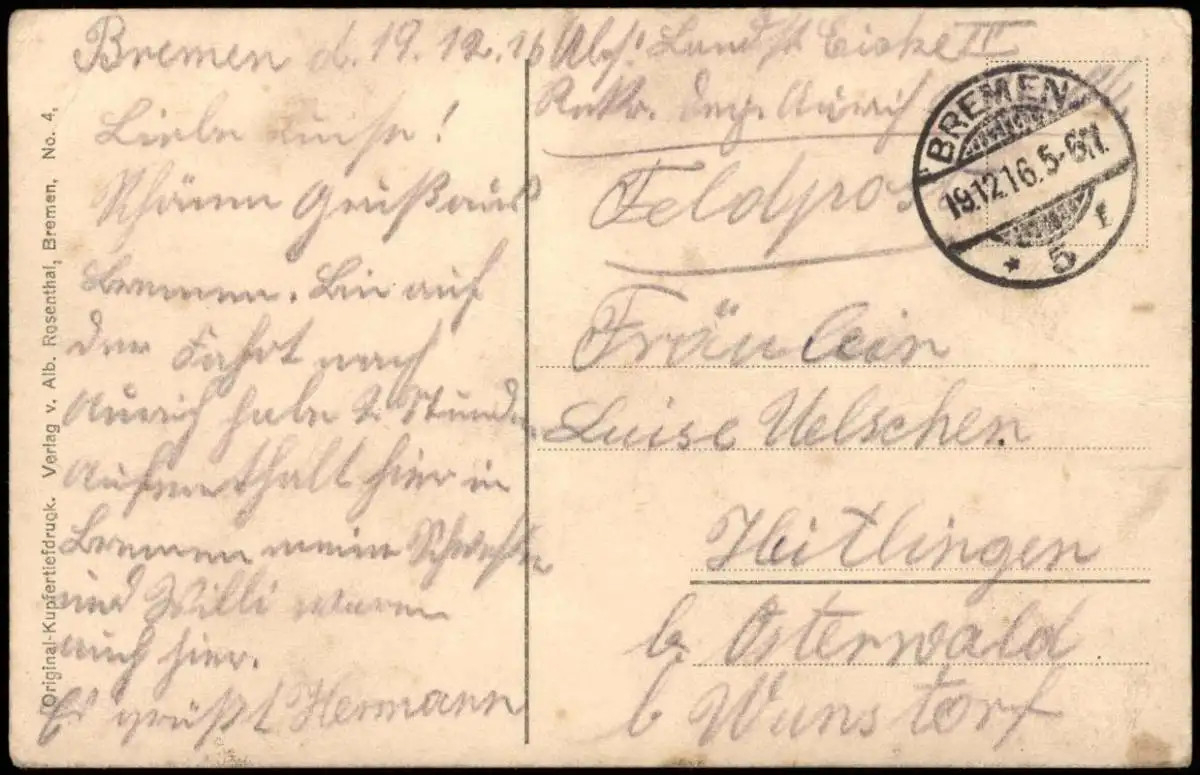 Bremen d. 19.12.16
Liebe Luise!
Schönen Gruß aus
Bremen. Bin auf
der Fahrt nach
Aurich habe 2 Stunden
Aufenthalt hier in
Bremen meine Schwester
und Willi waren
auch hier.
Es grüßt Hermann
Abs! Landst. Eicke III
Rekr. Dep. Aurich
Feldpost
Fräulein
Luise Uelschen.
Heitlingen
b. Osterwald
b Wunstorf
BREMEN
19.12.16.5-6N.
* 5 r
Original-Kupfertiefdruck. Verlag v. Alb. Rosenthal, Bremen, No. 4,